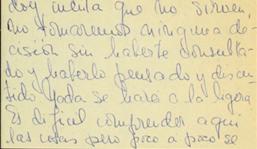 doy cuenta que no sirven,
no tomaremos ninguna de-
cisión sin haberte consulta-
do y haberlo pensado y discu-
tido. Nada se hará a la ligera
Es dificil comprender aqui
las cosas pero poco a poco se